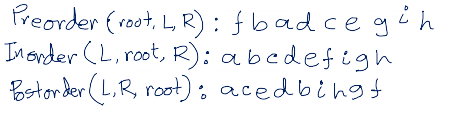 Preorder (root, L, R) : f b a d c e g i h
Inorder (L, root, R) : a b c d e f i g h
Postorder (L, R, root) : a c e d b i h g f